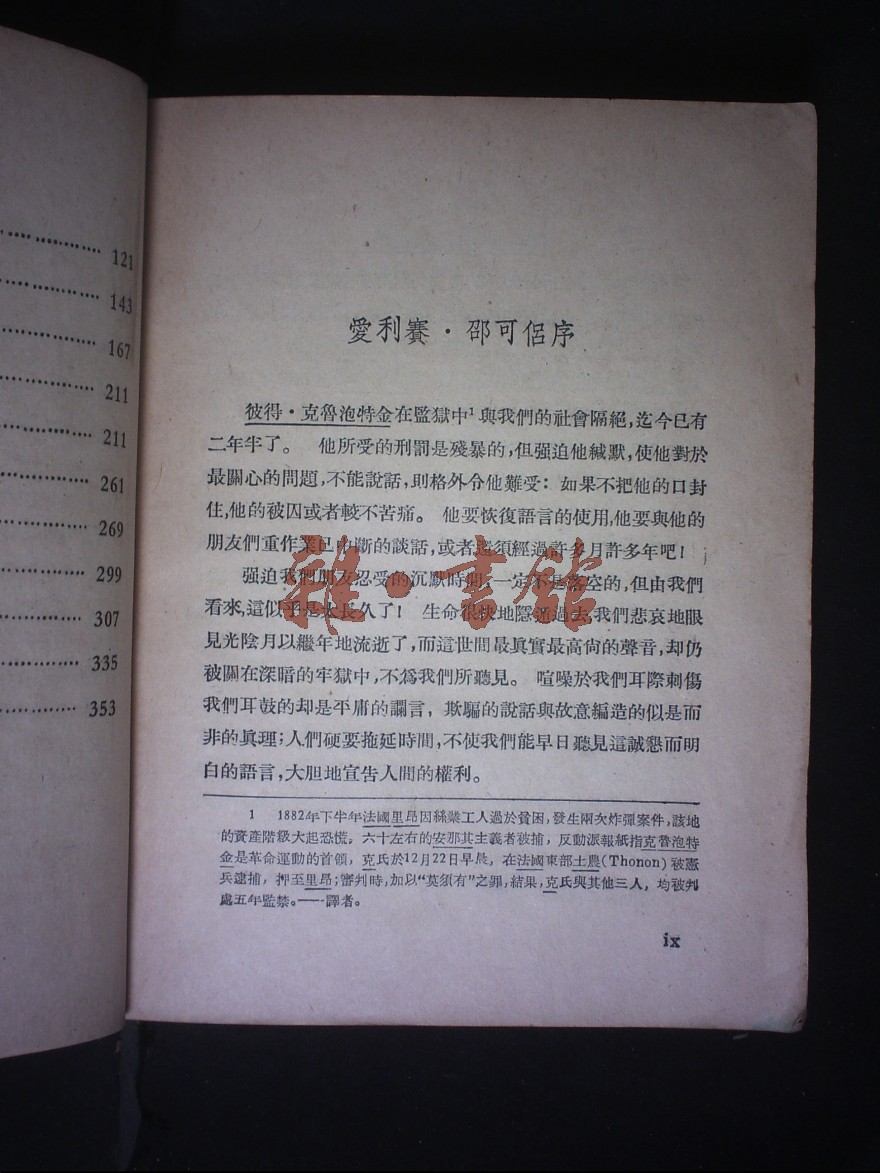 121
143
167
211
211
261
269
299
307
335
353
愛利賽·邵可侶序
彼得·克魯泡特金在監獄中1與我們的社會隔絕,迄今已有
二年半了。 他所受的刑罰是殘暴的,但强迫他緘默,使他對於
最關心的問題,不能說話,則格外令他難受: 如果不把他的口封
住,他的被囚或者較不苦痛。 他要恢復語言的使用,他要與他的
朋友們重作業已中斷的談話,或者還須經過許多月許多年吧!
强迫我們朋友忍受的沉默時間,一定不是落空的,但由我們
看來,這似乎是太長久了! 生命很快地隱逝過去,我們悲哀地眼
見光陰月以繼年地流逝了,而這世間最眞實最高尙的聲音,却仍
被關在深暗的牢獄中,不爲我們所聽見。 喧噪於我們耳際刺傷
我們耳鼓的却是平庸的讕言, 欺騙的說話與故意編造的似是而
非的眞理;人們硬要拖延時間,不使我們能早日聽見這誠懇而明
白的語言,大胆地宣告人間的權利。
1 1882年下半年法國里昂因絲業工人過於貧困,發生兩次炸彈案件,該地
的資產階級大起恐慌。六十左右的安那其主義者被捕,反動派報紙指克魯泡特
金是革命運動的首領,克氏於12月22日早晨,在法國東部土農(Thonon)被憲
兵逮捕,押至里昂;審判時,加以“莫須有”之罪,結果,克氏與其他三人,均被判
處五年監禁。——譯者。
ix
雜·書館